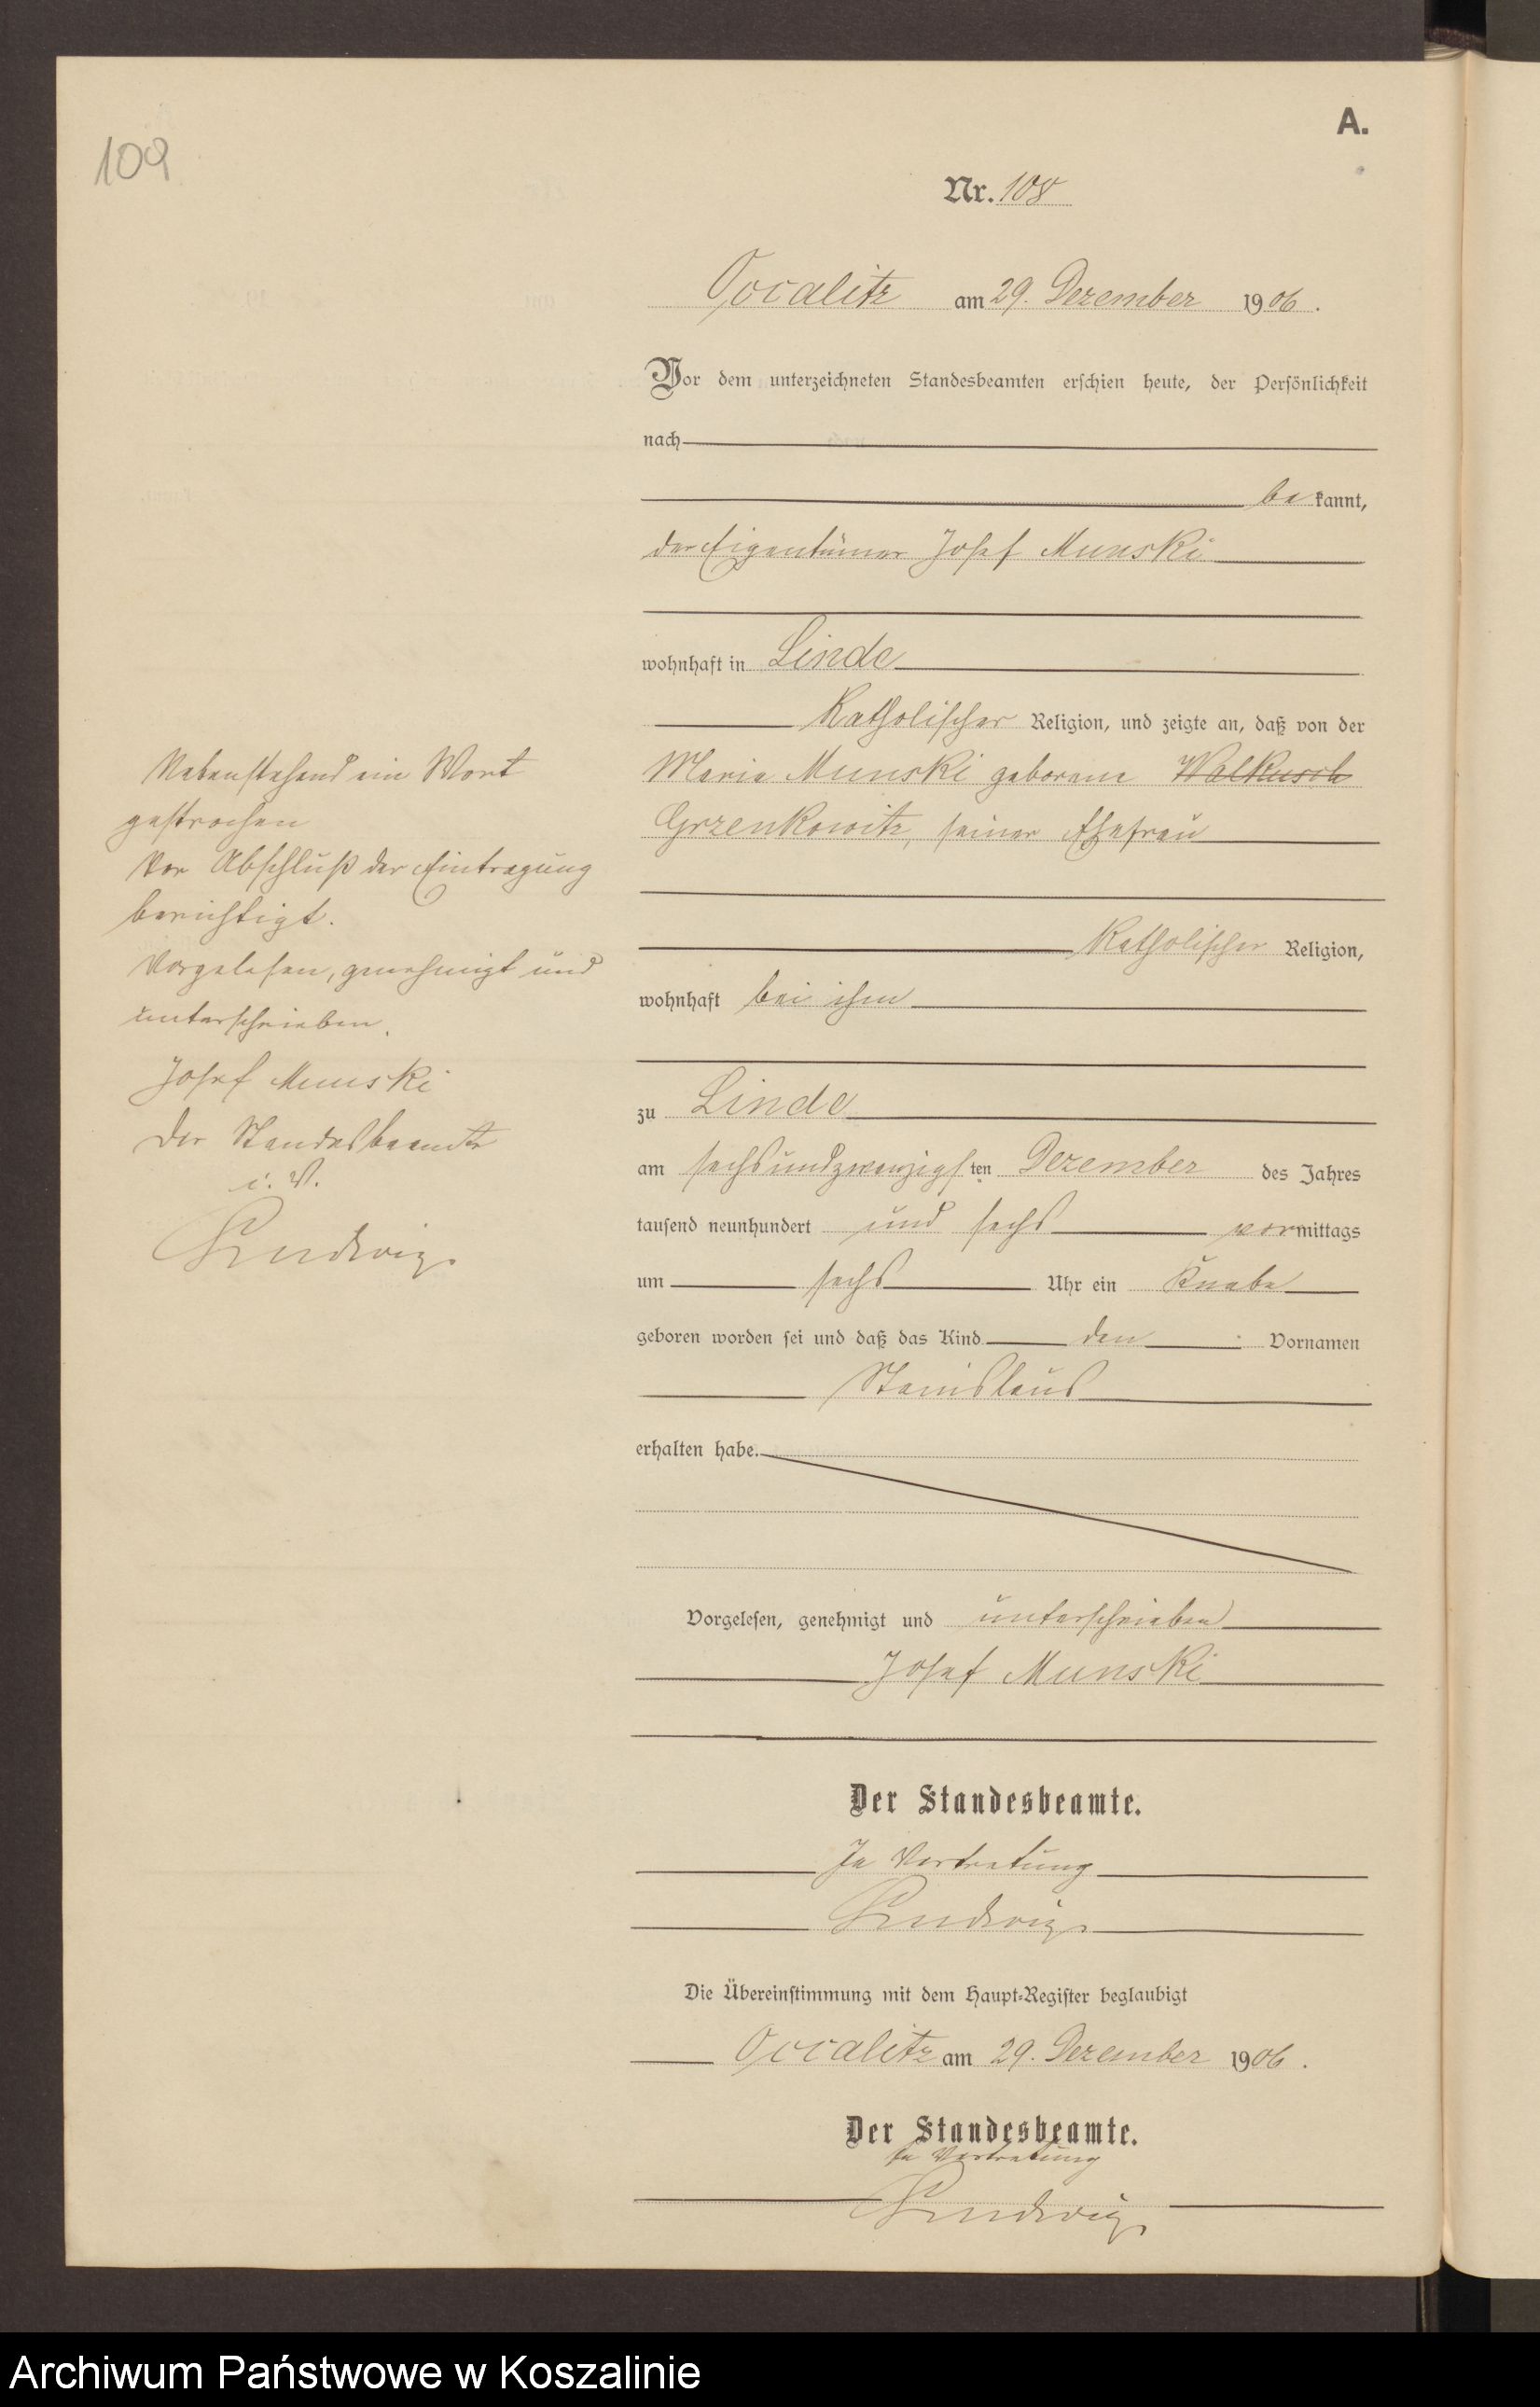 109
A.
Nr. 108
Occalitz am 29. Dezember 1906.
Vor dem unterzeichneten Standesbeamten erschien heute, der Persönlichkeit
nach
bekannt,
der Eigentümer Josef Munski
wohnhaft in Linde
Katholischer Religion, und zeigte an, daß von der
Maria Munski geborene Walkusch
Grzenkowitz, seiner Ehefrau
Katholischer Religion,
wohnhaft bei ihm
zu Linde
am sechsundzwanzigsten Dezember des Jahres
tausend neunhundert und sechs vormittags
um sechs Uhr ein Knabe
geboren worden sei und daß das Kind den Vornamen
Stanislaus
erhalten habe.
Vorgelesen, genehmigt und unterschrieben
Josef Munski
Der Standesbeamte.
In Vertretung
Ludwig.
Die Übereinstimmung mit dem Haupt-Register beglaubigt
Occalitz am 29. Dezember 1906.
Der Standesbeamte.
In Vertretung
Ludwig.
Nebenstehend ein Wort
gestrochen
Vor Abschluß der Eintragung
berichtigt.
Vorgelesen, genehmigt und
unterschrieben.
Josef Munski
Der Standesbeamte
i. V.
Ludwig.
Archiwum Państwowe w Koszalinie